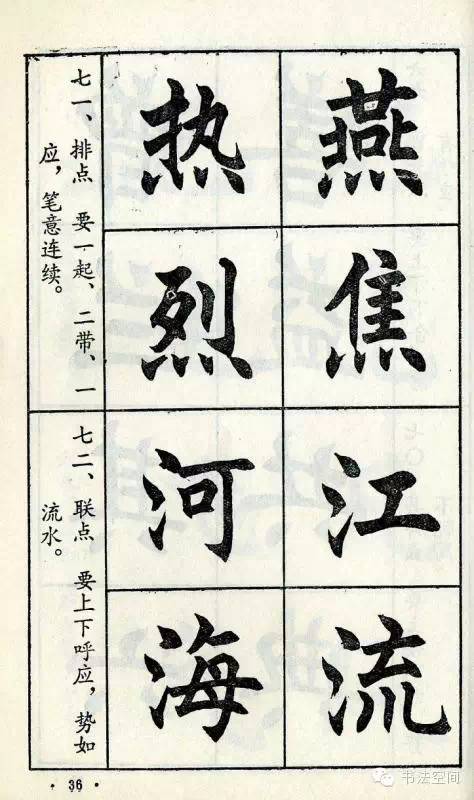 燕 热
焦 烈
七一、排点 要一起、二带、一
应，笔意连续。
江 河
流 海
七二、联点 要上下呼应，势如
流水。
·36·
书法空间